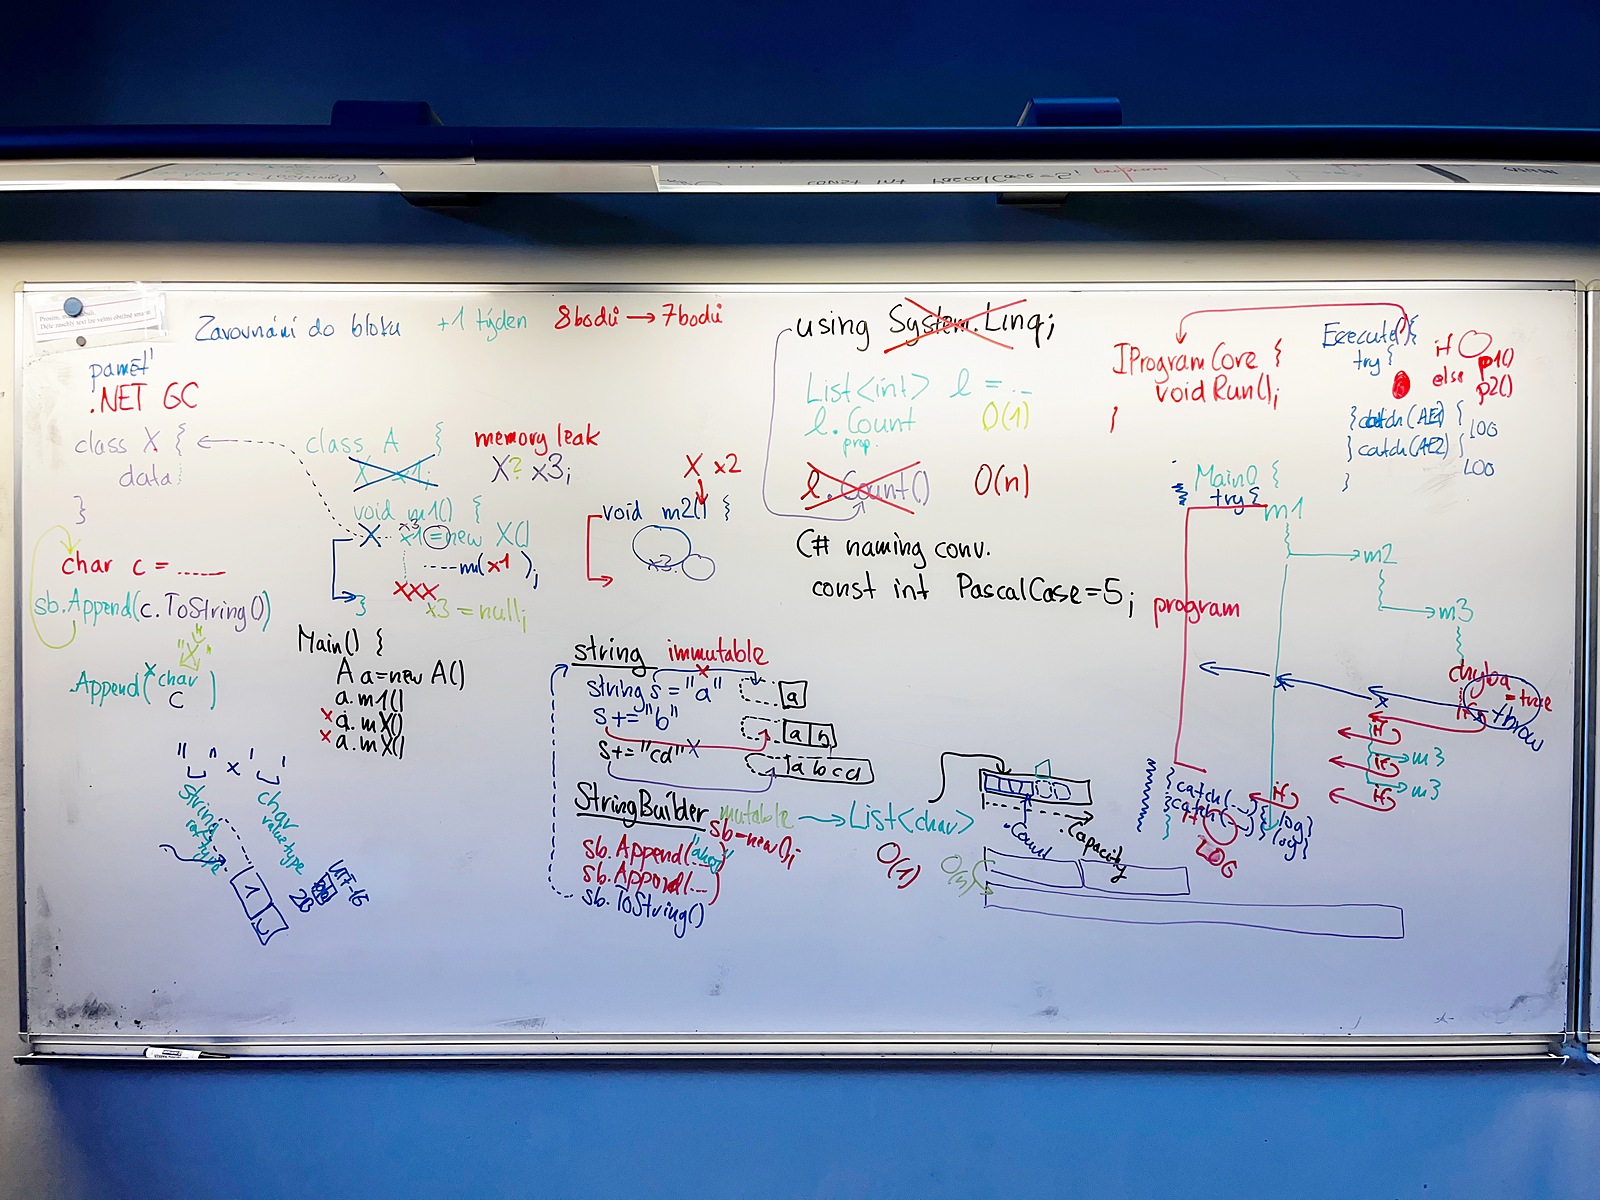 Zarovnání do bloku
+1 týden
8bodů → 7bodů
paměť
.NET GC
class X {
data
}
class A {
memory leak
X? x3;
void m1() {
x1 = new X()
m(x1);
xxx
}
x3 = null;
X x2
void m2() {
x3
char c = ......
sb.Append(c.ToString())
"x"
.Append(char
c )
Main() {
A a=new A()
a.m1()
x a.mX()
x a.mX()
" " x ' '
string
ref type
char
value type
1
2B
UTF-16
string immutable
string s = "a"
a
s += "b"
a b
s += "cd"
a b c d
StringBuilder mutable → List<char>
sb=new();
sb.Append(...)
sb.Append(...)
sb.ToString()
O(1)
O(n)
.Count
.Capacity
using System.Linq;
List<int> l = ...
l.Count O(1)
prop.
l.Count() O(n)
C# naming conv.
const int PascalCase=5;
IProgramCore {
void Run();
}
Execute() {
try {
if
p1()
else p2()
} catch (AE1) {
LOG
} catch (AE2) {
LOG
}
Main() {
try {
m1
m2
m3
program
chyba
= true
if
throw
if
m3
if
m3
if
if
} catch(...) {log}
catch(...) {log}
}
if
LOG